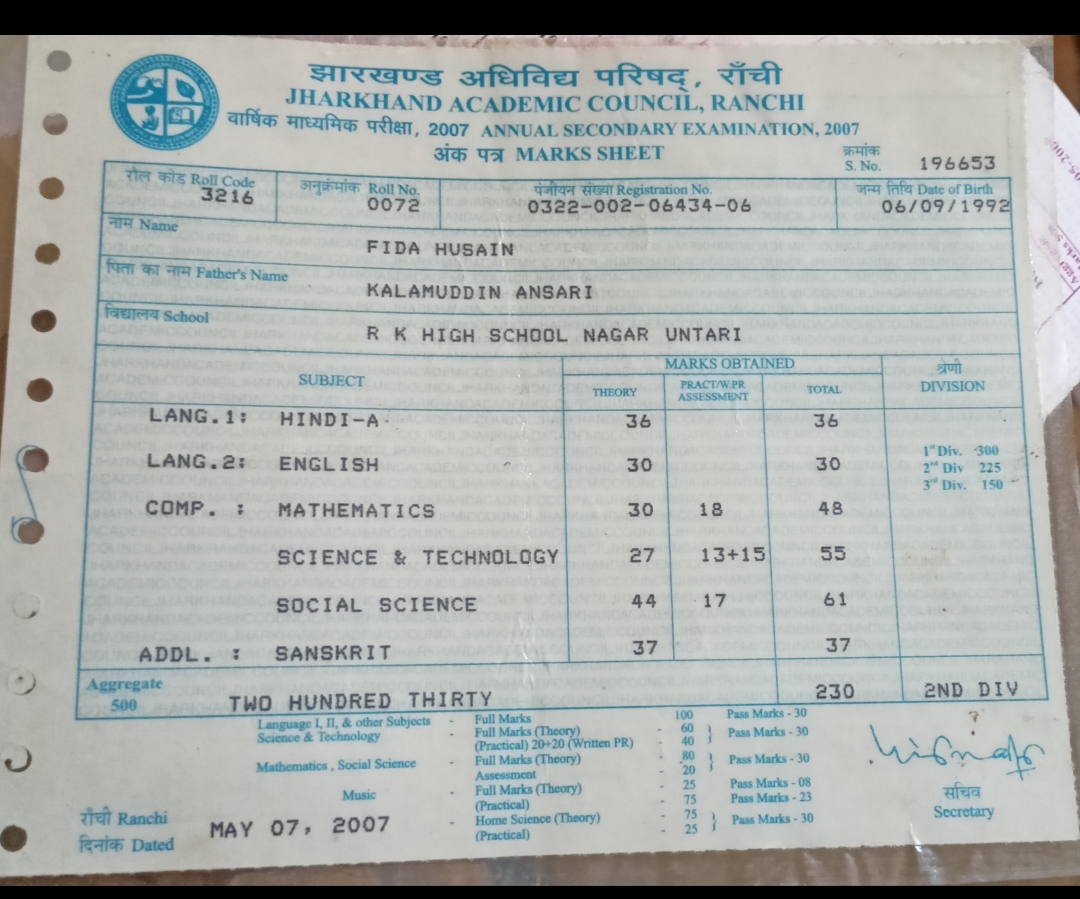 झारखण्ड अधिविद्य परिषद्, राँची
JHARKHAND ACADEMIC COUNCIL, RANCHI
वार्षिक माध्यमिक परीक्षा, 2007 ANNUAL SECONDARY EXAMINATION, 2007
अंक पत्र MARKS SHEET
क्रमांक
S. No. 196653
रोल कोड Roll Code अनुक्रमांक Roll No. पंजीयन संख्या Registration No. जन्म तिथि Date of Birth
3216 0072 0322-002-06434-06 06/09/1992
नाम Name
FIDA HUSAIN
पिता का नाम Father's Name
KALAMUDDIN ANSARI
विद्यालय School
R K HIGH SCHOOL NAGAR UNTARI
SUBJECT MARKS OBTAINED श्रेणी
THEORY PRACT/W.PR ASSESSMENT TOTAL DIVISION
LANG.1: HINDI-A 36 36
LANG.2: ENGLISH 30 30
1st Div. 300
2nd Div 225
3rd Div. 150
COMP. : MATHEMATICS 30 18 48
SCIENCE & TECHNOLOGY 27 13+15 55
SOCIAL SCIENCE 44 17 61
ADDL. : SANSKRIT 37 37
Aggregate
500 TWO HUNDRED THIRTY 230 2ND DIV
Language I, II, & other Subjects - Full Marks 100 Pass Marks - 30
Science & Technology - Full Marks (Theory) - 60 } Pass Marks - 30
(Practical) 20+20 (Written PR) - 40
Mathematics, Social Science - Full Marks (Theory) - 80 } Pass Marks - 30
Assessment - 20
Music - Full Marks (Theory) - 25 Pass Marks - 08
(Practical) - 75 Pass Marks - 23
- Home Science (Theory) - 75 } Pass Marks - 30
(Practical) - 25
राँची Ranchi
दिनांक Dated MAY 07, 2007
सचिव
Secretary